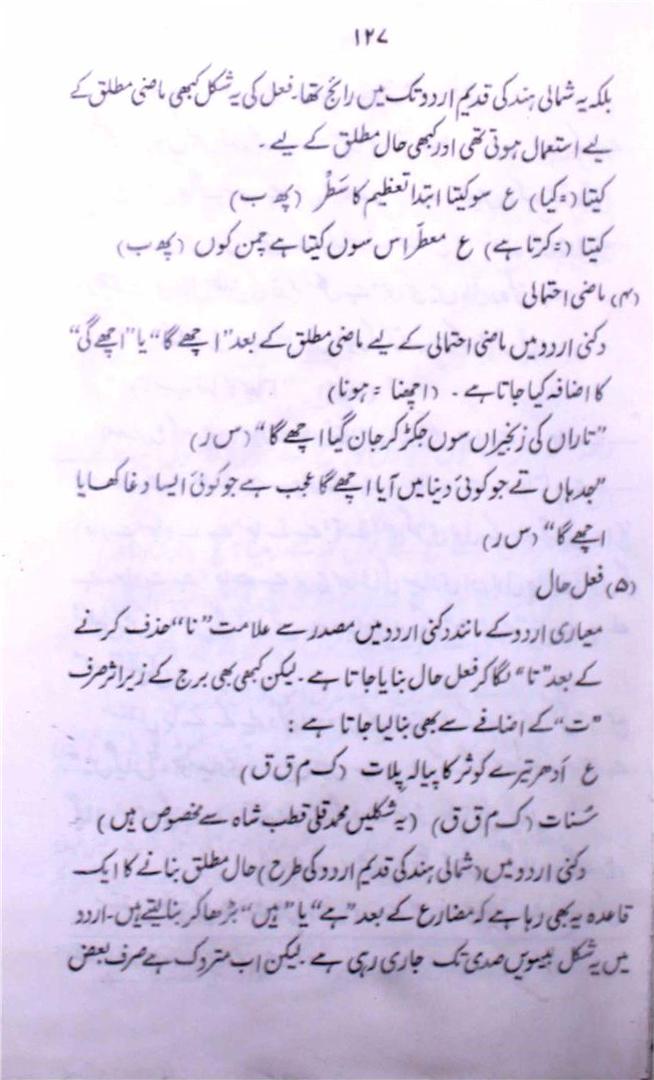 ۱۲۷
بلکہ یہ شمالی ہند کی قدیم اردو تک میں رائج تھا۔ فعل کی یہ شکل کبھی ماضی مطلق کے
لیے استعمال ہوتی تھی اور کبھی حال مطلق کے لیے۔
کیتا (= کیا) ع سو کیتا ابتدا تعظیم کا سَطْر (پھ ب)
کیتا (= کرتا ہے) ع معطّر اس سوں کیتا ہے چمن کوں (پھ ب)
(۴) ماضی احتمالی
دکنی اردو میں ماضی احتمالی کے لیے ماضی مطلق کے بعد ”اچھے گا“ یا ”اچھے گی“
کا اضافہ کیا جاتا ہے۔ (اچھنا = ہونا)
”تاراں کی زنجیراں سوں جکڑ کر جان گیا اچھے گا“ (س ر)
”جدہاں تے جو کوئی دنیا میں آیا اچھے گا عجب ہے جو کوئی ایسا دغا کھایا
اچھے گا“ (س ر)
(۵) فعل حال
معیاری اردو کے مانند دکنی اردو میں مصدر سے علامت ”نا“ حذف کرنے
کے بعد ”تا“ لگا کر فعل حال بنایا جاتا ہے۔ لیکن کبھی بھی برج کے زیر اثر صرف
”ت“ کے اضافے سے بھی بنا لیا جاتا ہے :
ع اَدھر تیرے کوثر کا پیالہ پلات (ک م ق ق)
سُنات (ک م ق ق) (یہ شکلیں محمد قلی قطب شاہ سے مخصوص ہیں)
دکنی اردو میں (شمالی ہند کی قدیم اردو کی طرح) حال مطلق بنانے کا ایک
قاعدہ یہ بھی رہا ہے کہ مضارع کے بعد ”ہے“ یا ”ہیں“ بڑھا کر بنا لیتے ہیں۔ اردو
میں یہ شکل بیسویں صدی تک جاری رہی ہے۔ لیکن اب متروک ہے صرف بعض